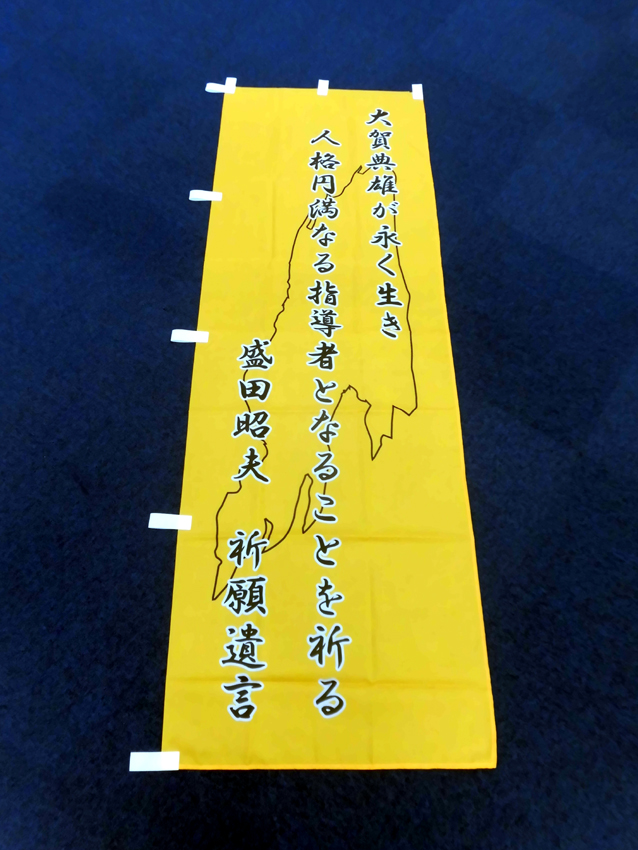 大賀典雄が永く生き
人格円満なる指導者となることを祈る
盛田昭夫 祈願遺言